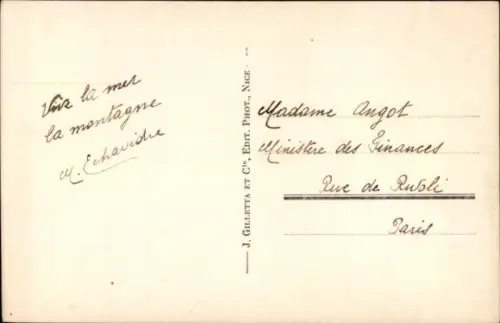 Vive la mer
la montagne
M. Echavidre
J. GILLETTA ET Cie, EDIT. PHOT., NICE
Madame Angot
Ministère des Finances
Rue de Rivoli
Paris